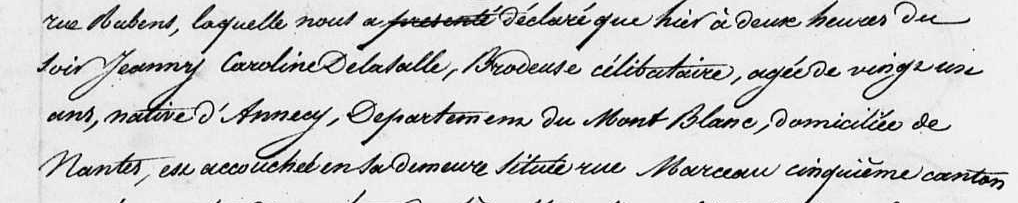 rue Rubens, laquelle nous a presenté déclaré que hier à deux heures du
soir Jeanny Caroline Delasalle, Brodeuse célibataire, agée de vingt un
ans, native d'Annecy, Departement du Mont Blanc, domiciliée de
Nantes, est accouchée en sa demeure située rue Marceau cinquième canton